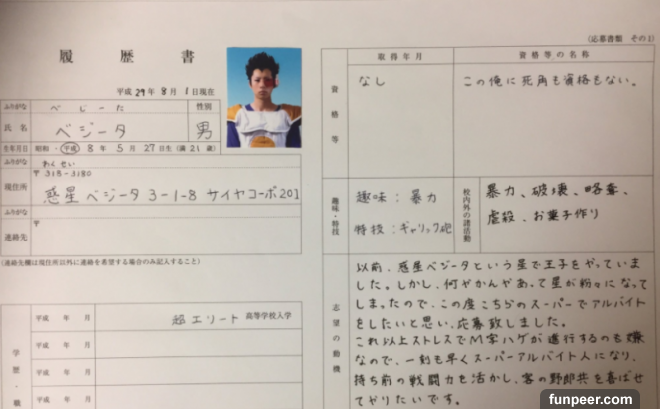 (応募書類 その1)
履歴書
平成 29年 8月 1日現在
ふりがな べじーた 性別
氏名 ベジータ 男
生年月日 昭和・平成 8年 5月 27日生 (満 21歳)
ふりがな わくせい
〒318-3180
現住所 惑星ベジータ 3-1-8 サイヤコーポ201
ふりがな
連絡先 〒
(連絡先欄は現住所以外に連絡を希望する場合のみ記入すること)
平成 年 月 超エリート 高等学校入学
平成 年 月
平成 年 月
平成 年 月
学歴・職
取得年月 資格等の名称
資格等 なし この俺に死角も資格もない。
趣味・特技 趣味:暴力
特技:ギャリック砲
校内外の諸活動 暴力、破壊、略奪、
虐殺、お菓子作り
志望の動機
以前、惑星ベジータという星で王子をやっていま
した。しかし、何やかんやあって星が粉々になって
しまったので、この度こちらのスーパーでアルバイト
をしたいと思い、応募致しました。
これ以上ストレスでM字ハゲが進行するのも嫌
なので、一刻も早くスーパーアルバイト人になり、
持ち前の戦闘力を活かし、客の野郎共を喜ばせ
てやりたいです。
funpeer.com